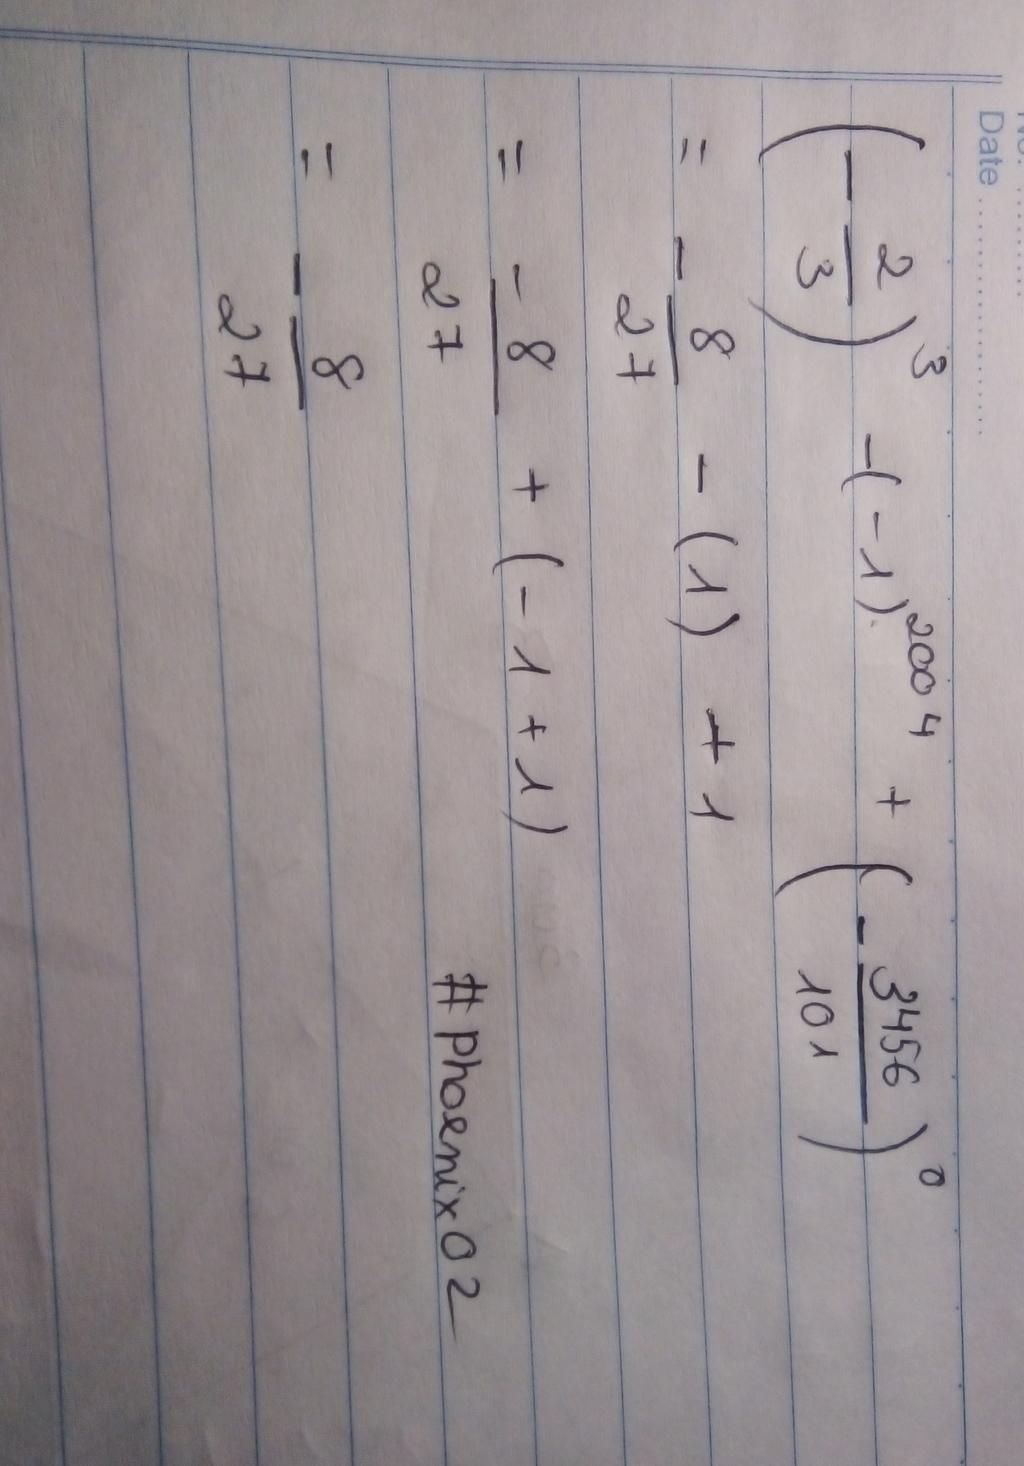 No. ..........
Date ....................
(- 2/3)³ -(-1).²⁰⁰⁴ + (- 3456/101)⁰
= - 8/27 - (1) + 1
= -8/27 + (-1+1)
= - 8/27
# Phoenix02